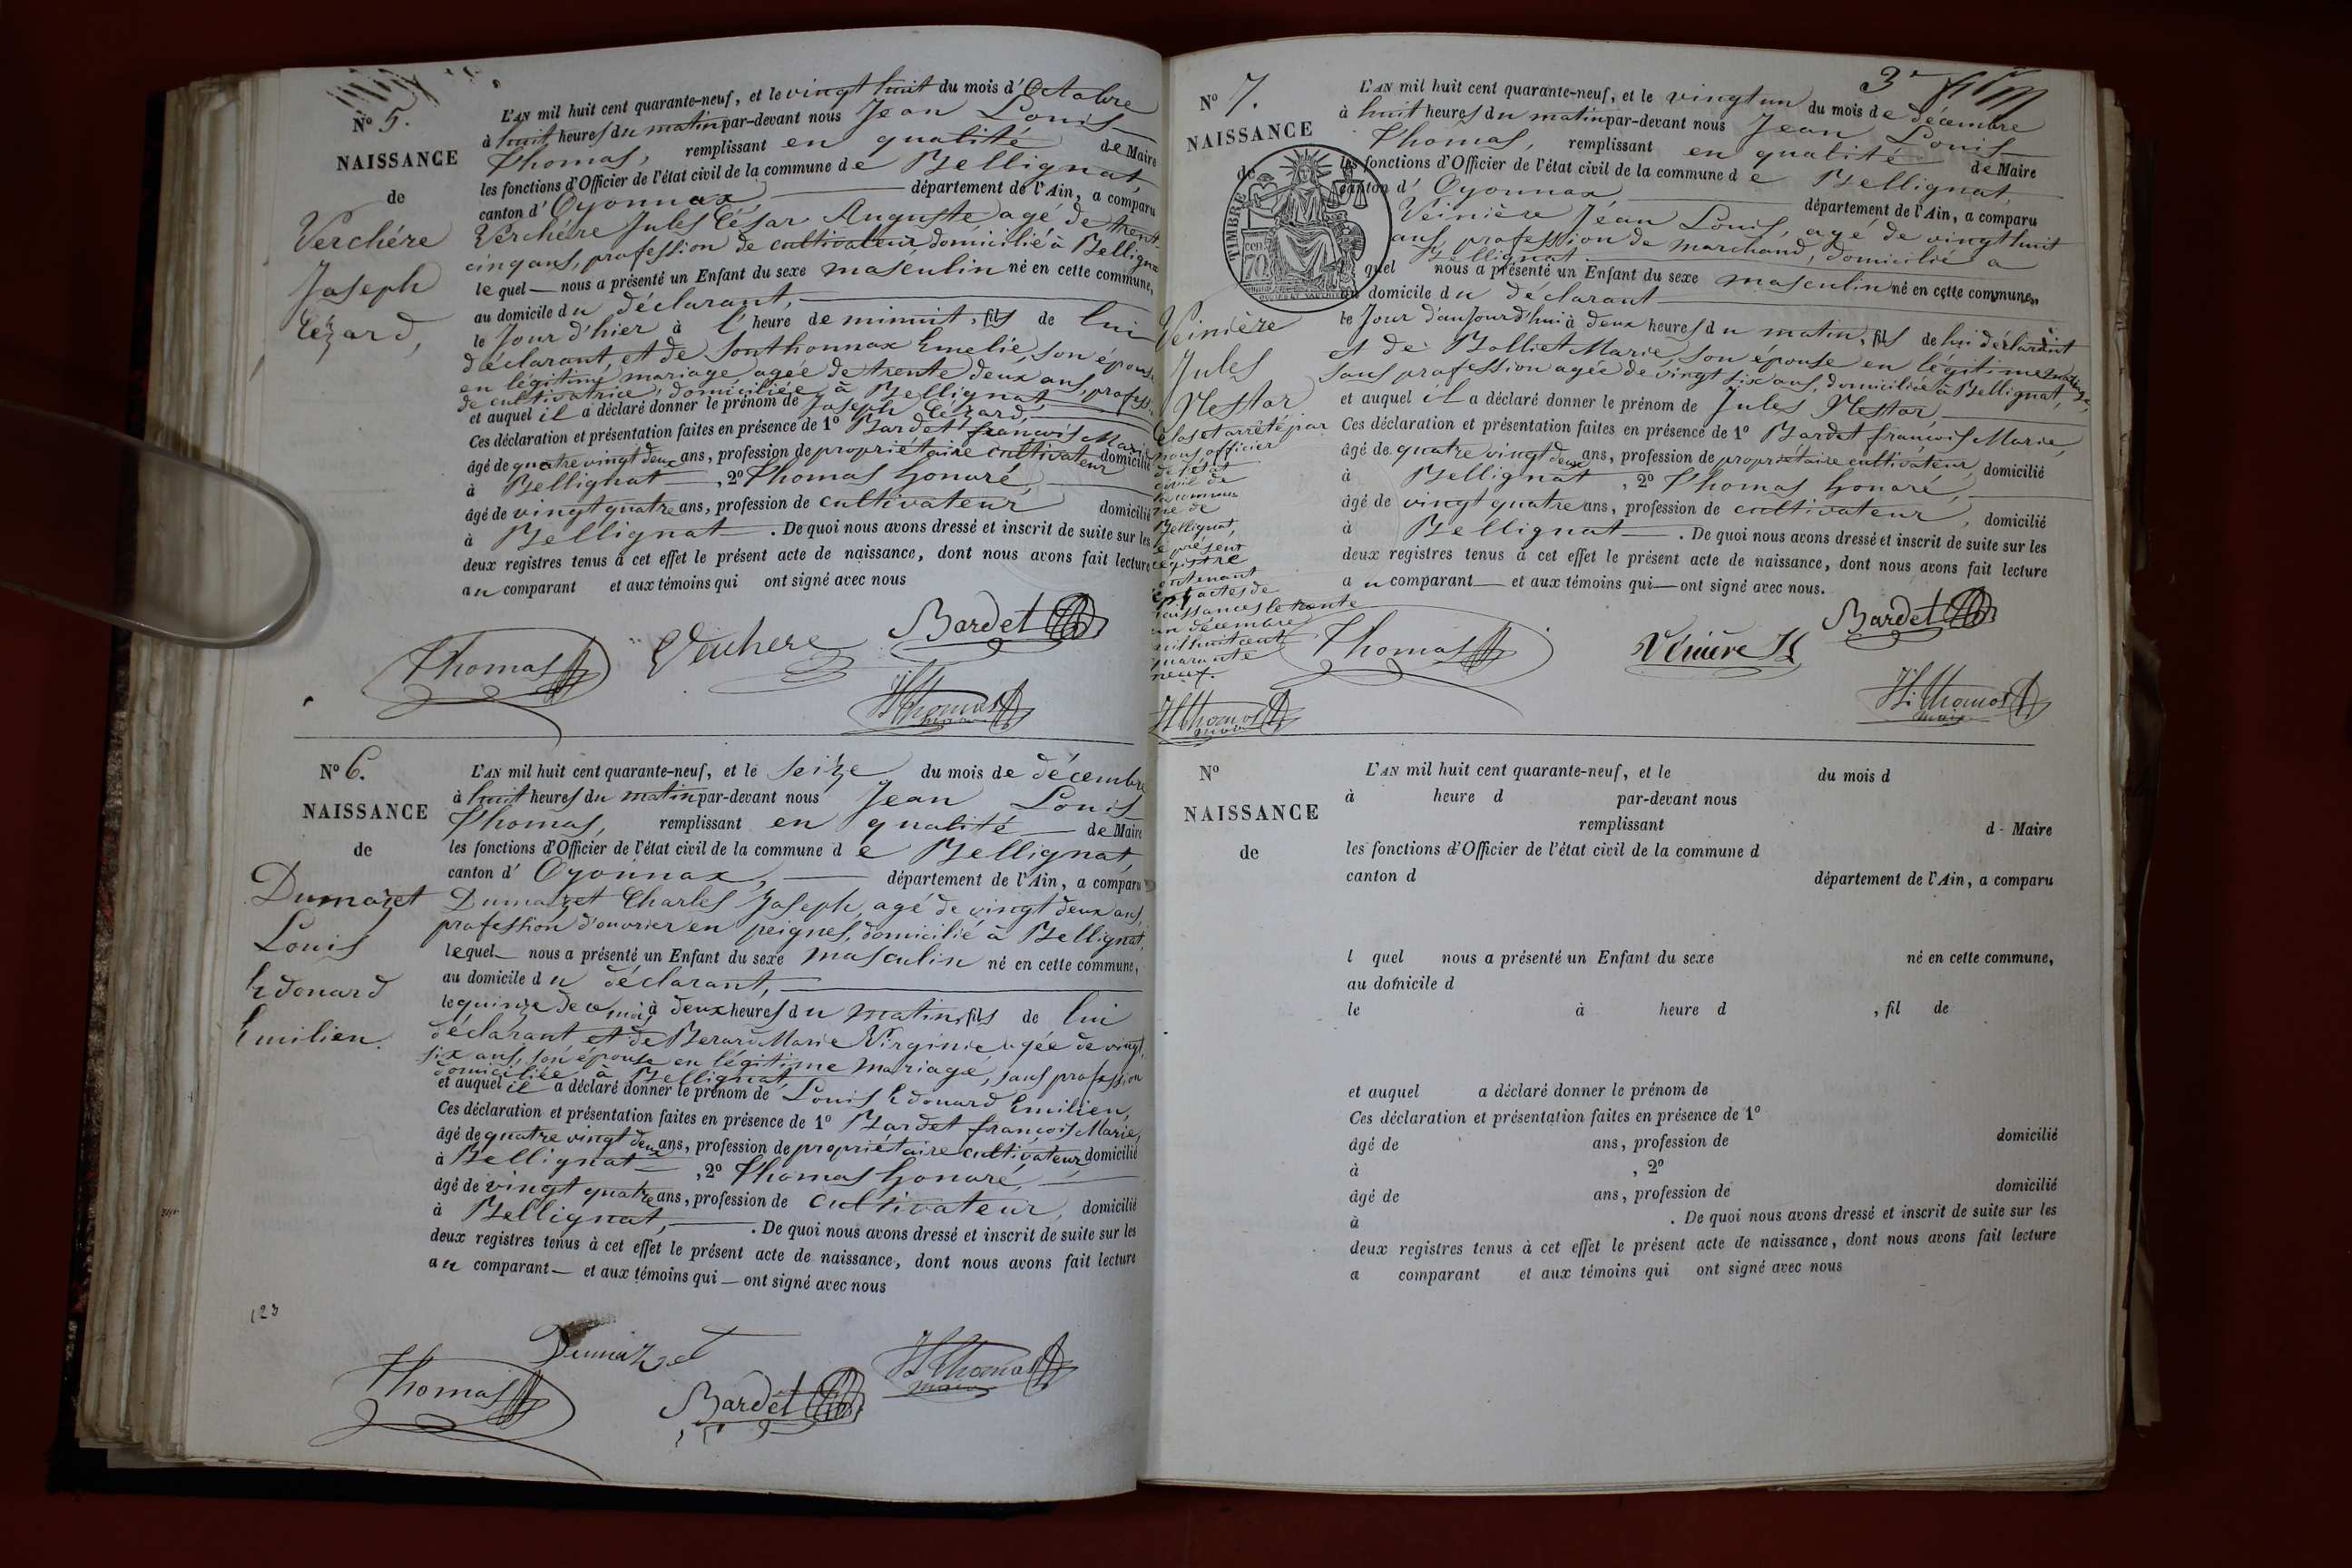 N° 5.
NAISSANCE
de
Verchére
Joseph
Cézard,
L'AN mil huit cent quarante-neuf, et le vingt huit du mois d'Octobre
à huit heures du matin par-devant nous Jean Louis
Thomas, remplissant en qualité de Maire
les fonctions d'Officier de l'état civil de la commune de Bellignat,
canton d'Oyonnax, département de l'Ain, a comparu
Verchére Jules César Auguste agé de trente
cinq ans, profession de cultivateur domicilié à Bellignat
lequel nous a présenté un Enfant du sexe masculin né en cette commune,
au domicile du déclarant,
le Jour d'hier à l' heure de minuit, fils de lui
déclarant, et de Sonthonnax Emelie, son épouse
en légitime mariage agée de trente deux ans, profess.
de cultivatrice, domiciliée à Bellignat
et auquel il a déclaré donner le prénom de Joseph Cézard,
Ces déclaration et présentation faites en présence de 1° Bardet françois Marie
âgé de quatre vingt deux ans, profession de propriétaire cultivateur domicilié
à Bellignat, 2° Thomas honoré,
âgé de vingt quatre ans, profession de cultivateur domicilié
à Bellignat. De quoi nous avons dressé et inscrit de suite sur les
deux registres tenus à cet effet le présent acte de naissance, dont nous avons fait lecture
au comparant et aux témoins qui ont signé avec nous
Thomas Verchere Bardet
Thomas
maire
N° 6.
NAISSANCE
de
Dumazet
Louis
Edouard
Emilien.
L'AN mil huit cent quarante-neuf, et le seize du mois de décembre
à huit heures du matin par-devant nous Jean Louis
Thomas, remplissant en qualité de Maire
les fonctions d'Officier de l'état civil de la commune de Bellignat,
canton d'Oyonnax, département de l'Ain, a comparu
Dumazet Charles Joseph, agé de vingt deux ans,
profession d'ouvrier en peignes, domicilié à Bellignat,
lequel nous a présenté un Enfant du sexe masculin né en cette commune,
au domicile du déclarant,
le quinze de ce mois à deux heures du matin, fils de lui
déclarant et de Berard Marie Virginie agée de vingt
six ans, son épouse en légitime mariage, sans profession
domiciliée à Bellignat
et auquel il a déclaré donner le prénom de Louis Edouard Emilien,
Ces déclaration et présentation faites en présence de 1° Bardet françois Marie,
âgé de quatre vingt deux ans, profession de propriétaire cultivateur domicilié
à Bellignat, 2° Thomas honoré,
âgé de vingt quatre ans, profession de cultivateur, domicilié
à Bellignat,. De quoi nous avons dressé et inscrit de suite sur les
deux registres tenus à cet effet le présent acte de naissance, dont nous avons fait lecture
au comparant et aux témoins qui ont signé avec nous
123
Dumazet
Thomas Bardet Thomas
maire
N° 7.
NAISSANCE
de
TIMBRE
70
Veinière
Jules
Nestor
Clos et arrêté par
nous, officier
de l'état
civil de
la commu
ne de
Bellignat,
le présent
registre
contenant
sept actes de
naissances le trente
un décembre
mil huit cent
quarante
neuf.
Thomas
maire
3
L'AN mil huit cent quarante-neuf, et le vingt un du mois de décembre
à huit heures du matin par-devant nous Jean Louis
Thomas, remplissant en qualité de Maire
les fonctions d'Officier de l'état civil de la commune de Bellignat,
canton d'Oyonnax département de l'Ain, a comparu
Veinière Jean Louis, agé de vingt huit
ans, profession de marchand, domicilié a
Bellignat
quel nous a présenté un Enfant du sexe masculin né en cette commune,
au domicile du déclarant
le Jour d'aujourd'hui à deux heures du matin, fils de lui déclarant
et de Bolliet Marie, son épouse en légitime mariage,
sans profession agée de vingt six ans, domiciliée à Bellignat,
et auquel il a déclaré donner le prénom de Jules Nestor,
Ces déclaration et présentation faites en présence de 1° Bardet françois Marie,
âgé de quatre vingt deux ans, profession de propriétaire cultivateur, domicilié
à Bellignat, 2° Thomas honoré,
âgé de vingt quatre ans, profession de cultivateur, domicilié
à Bellignat. De quoi nous avons dressé et inscrit de suite sur les
deux registres tenus à cet effet le présent acte de naissance, dont nous avons fait lecture
au comparant et aux témoins qui ont signé avec nous.
Thomas Bardet
Thomas
maire
N°
NAISSANCE
de
L'AN mil huit cent quarante-neuf, et le du mois d
à heure d par-devant nous
remplissant d - Maire
les fonctions d'Officier de l'état civil de la commune d
canton d département de l'Ain, a comparu
l quel nous a présenté un Enfant du sexe né en cette commune,
au domicile d
le à heure d , fil de
et auquel a déclaré donner le prénom de
Ces déclaration et présentation faites en présence de 1°
âgé de ans, profession de domicilié
à , 2°
âgé de ans, profession de domicilié
à . De quoi nous avons dressé et inscrit de suite sur les
deux registres tenus à cet effet le présent acte de naissance, dont nous avons fait lecture
a comparant et aux témoins qui ont signé avec nous